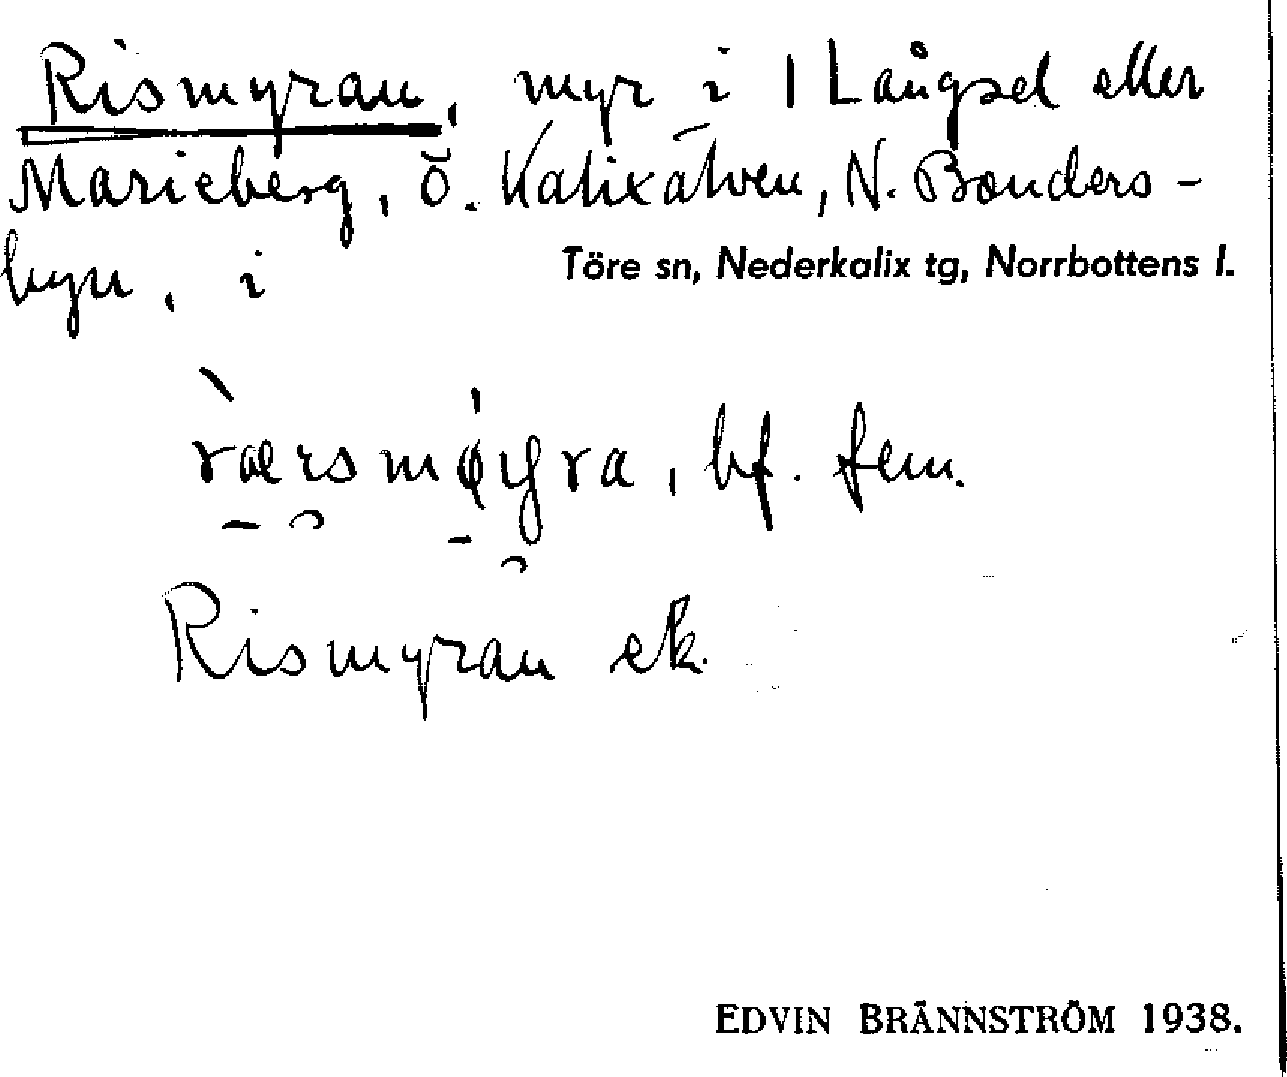 Rismyran, myr i 1 Långsel eller
Marieberg, ö. Kalixälven, N. Bonders-
byn, i
Töre sn, Nederkalix tg, Norrbottens l.
bf. fem.
Rismyran ek.
EDVIN BRÄNNSTRÖM 1938.